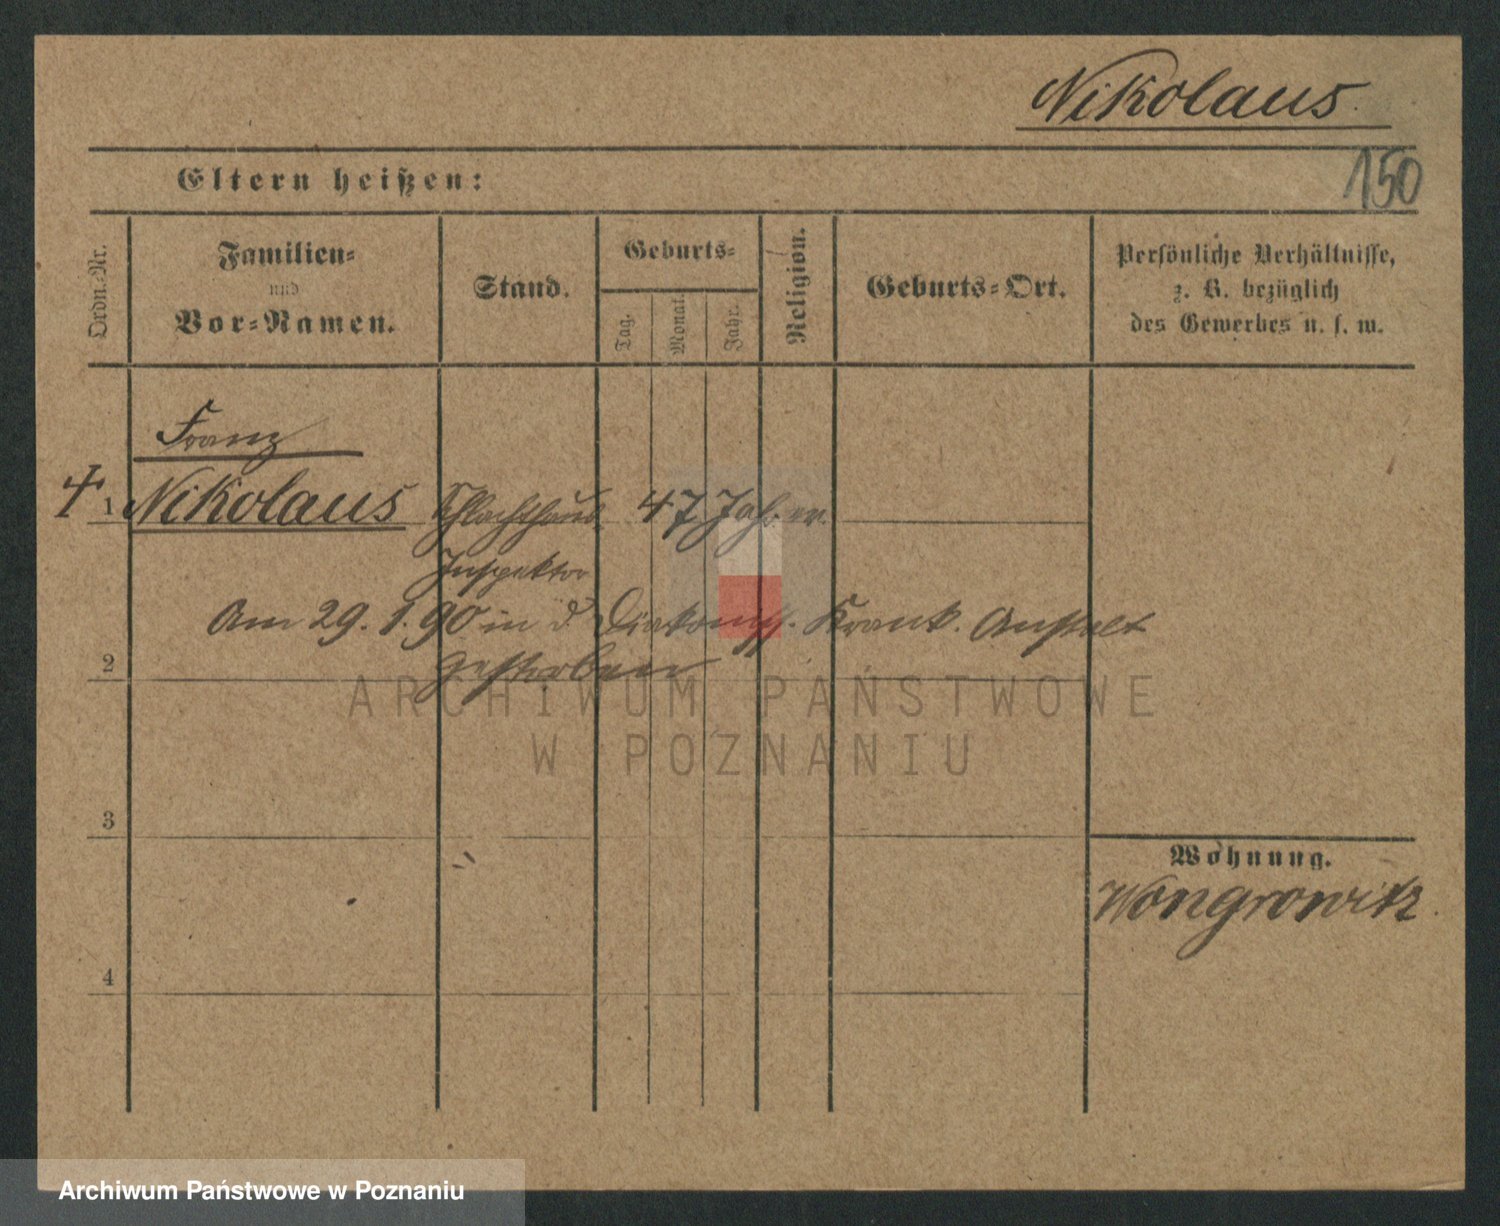 Nikolaus
150
Eltern heißen:
Ordn.-Nr.
Familien-
und
Vor-Namen.
Stand.
Geburts-
Tag.
Monat.
Jahr.
Religion.
Geburts-Ort.
Persönliche Verhältnisse,
z. B. bezüglich
des Gewerbes u. s. w.
Franz
1 Nikolaus Schlachthaus 47 Jahr
Inspektor
Am 29. 1. 90 in d. Diakoniss. Krank. Anstalt
2 gestorben
ARCHIWUM PAŃSTWOWE
W POZNANIU
3
Wohnung.
Wongrowitz
4
Archiwum Państwowe w Poznaniu